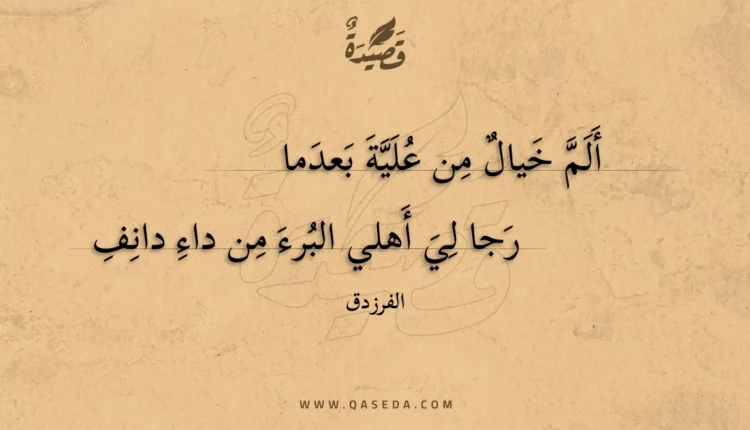 قَصِيدَةٌ
أَلَمَّ خَيالٌ مِن عُلَيَّةَ بَعدَما
رَجا لِيَ أَهلي البُرءَ مِن داءِ دانِفِ
الفرزدق
WWW.QASEDA.COM